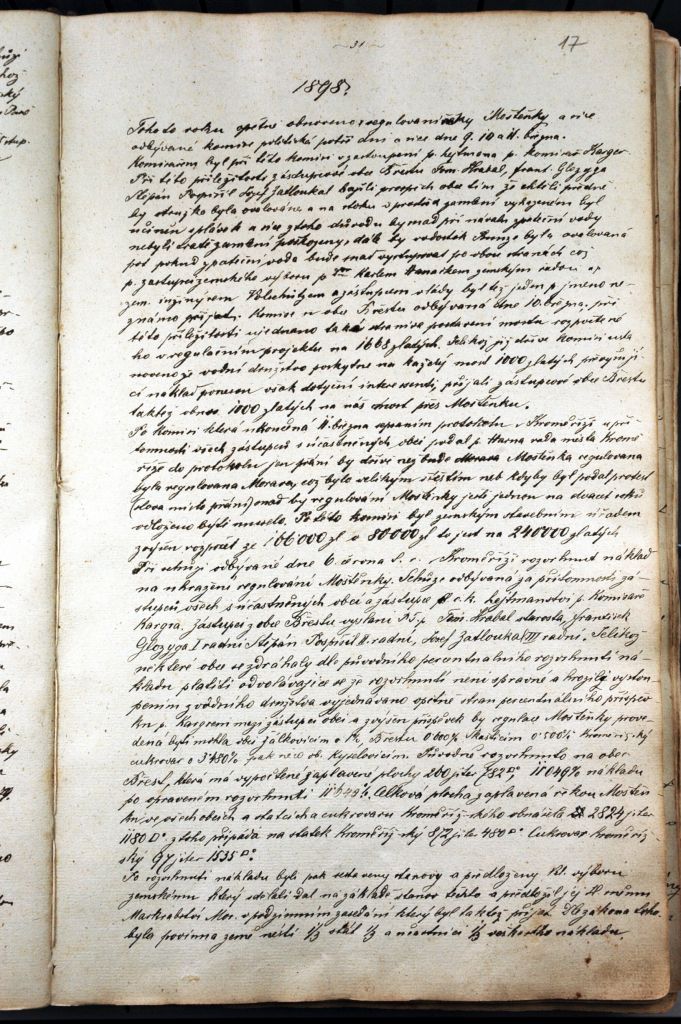 31
17
1898.
Tohoto roku opětně obnoveno regulování řeky Moštěnky a sice
odbývané komise politická po tři dni a sice dne 9. 10 a 11. března.
Komisařem byl při této komisi v zastoupení p. hejtmana p. komisař Karger
Při této příležitosti zástupcové obce Břestu Tom. Hrabal, Frant. Glozyga
Štěpán Pospíšil Josef Zatloukal hájili prospěch obce tím že chtěli
by byla ovalována a na stoku
učiněn splávek a sice z toho důvodu by snad při návalu zpáteční vody
nebyli tratě zambení poškozeny, dále by ovalována
poť pokud zpáteční voda bude snad vystupovat po obou stranách což
p. zástupci zemského výboru p. Karlem zemským radou a p.
zem. inžinýrem a zástupcem vlády byl též jeden p. jméno ne-
známo přijat. Komise v obci Břestu odbývaná dne 10. března, při
této příležitosti ujednáno také stranivá postavení mostu rozpočtené
ho v regulačním projektu na 1668 zlatých. Jelikož již dříve komisí usta
noveno že vodní družstvo poskytne na každý most 1000 zlatých převyšují
cí náklad ponesou však dotyční interesenti, přijali zástupcové obce Břestu
taktéž obnos 1000 zlatých na náš most přes Moštěnku.
Po komisi která ukončena 11. března sepsáním protokolu v Kroměříži u pří-
tomnosti všech zástupců súčastněných obcí podal p. rada města Kromě
říže do protokolu jen přání by dříve než bude Morava Moštěnka regulovaná
byla regulovaná Morava, což bylo velikým štěstím neb kdyby byl podal protest
(slova místo přání) snad by regulování Moštěnky ještě jednou na dvacet roků
odloženo býti muselo. Po této komisi byl zemským stavebním úřadem
zvýšen rozpočet ze 166000 zl o 80000 zl to jest na 240000 zlatých
Při schůzi odbývané dne 6. června t. r. v Kroměříži rozvrhnut náklad
na uhražení regulování Moštěnky. Schůze odbývaná za přítomnosti zá-
stupců všech súčastněných obcí a zástupce c. k. hejtmanství p. komisaře
Kargra, zástupci z obce Břestu vysláni P. T. p. Tom. Hrabal starosta, František
Glozyga I radní Štěpán Pospíšil II. radní, Josef Zatloukal III radní. Jelikož
některé obce se zdráhaly dle původního percentualního rozvrhnutí ná-
kladu platiti odvolávajíce se že rozvrhnutí není správné a hrozili vystou-
pením z vodního družstva vyjednáváno opětně stran percentuálního příspěv
ku p. Kargrem mezi zástupci obcí a zvýšen příspěvek by regulace Moštěnky prove
dená býti mohla obci Žalkovicím o 1%, Břestu 0·600% Skašticím 0·500% Kroměřížský
cukrovar o 3·480% pak něco ob. Kyselovicím. Původně rozvrhnuto na obec
Břest, která má vypočtené zaplavené plochy 260 jiter 782□° 11·049% nákladu
po opraveném rozvrhnutí 11·649%. Celková plocha zaplavená řekou Moštěn
kou ve všech obcích a statcích a cukrovaru Kroměřížského obnášela 2824 jiter
1180□° z toho připadá na statek Kroměřížský 872 jiter 480□° Cukrovar Kroměříž
ský 97 jiter 1535□°
Po rozvrhnutí nákladu byli pak sestaveny stanovy a předloženy Vel. výboru
zemskému který schválil dal na základě stanov těchto a předložil jej sl. sněmu
Markrabství Mor. v podzimním zasedání který byl taktéž přijat. Dle zákona toho
byla povinna země nésti 1/3 stát 1/3 a účastníci 1/3 veškerého nákladu.